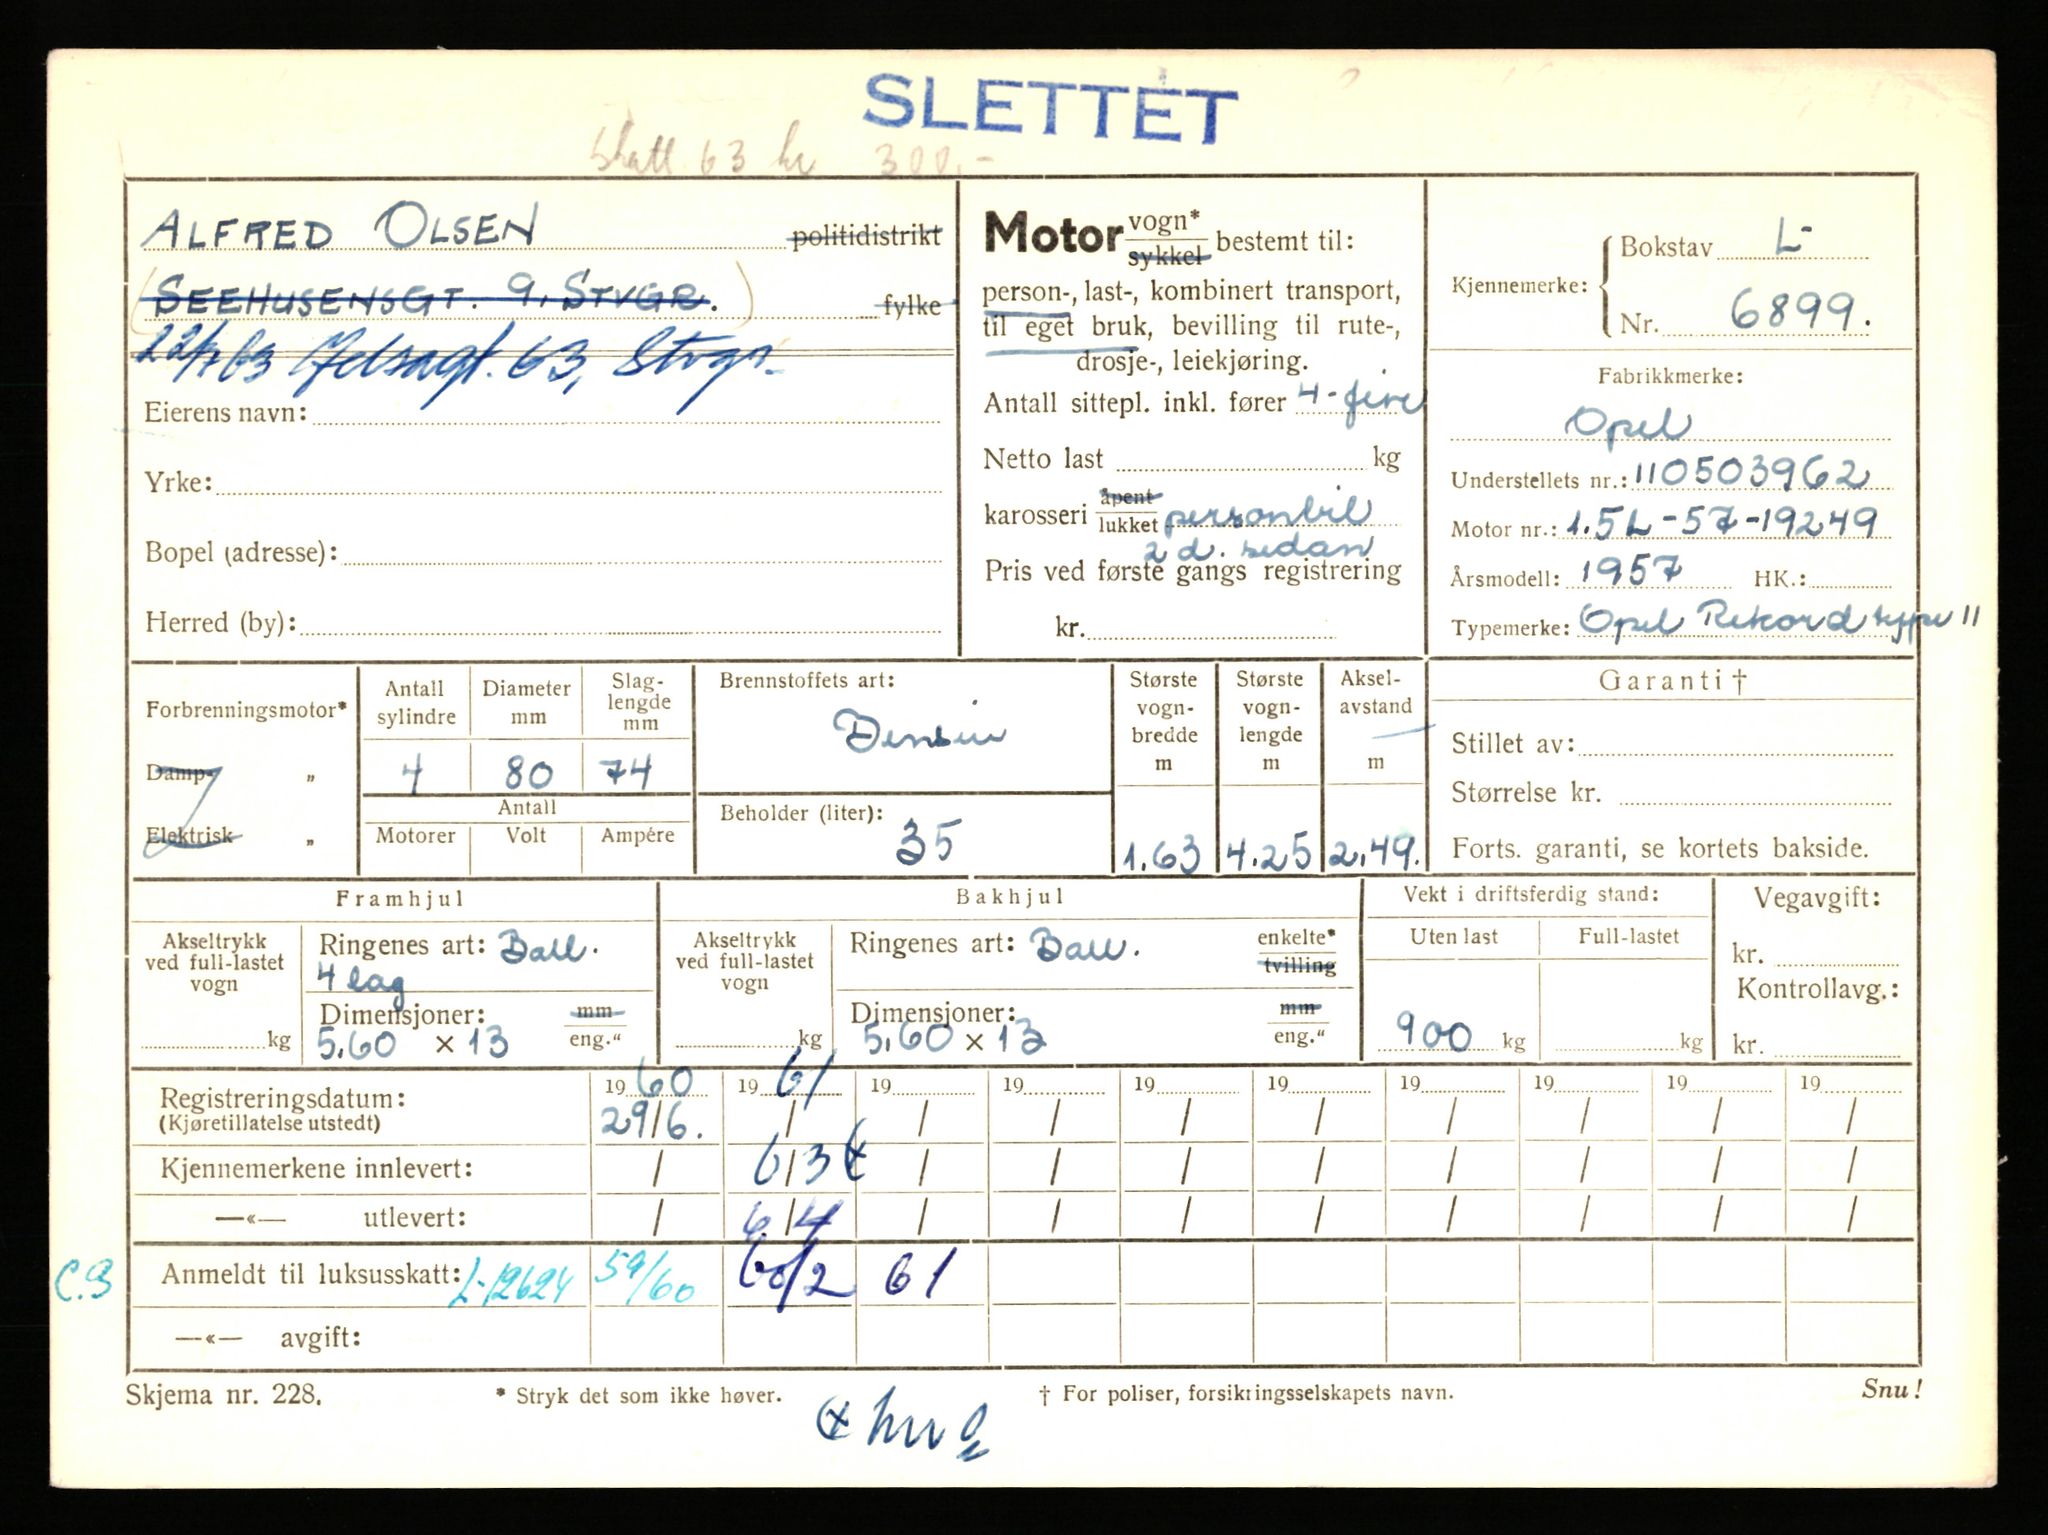 SLETTET
skatt 63 kr 300.-
ALFRED OLSEN politidistrikt
(SEEHUSENSGT. 9, STVGR.) fylke
63, Stvgr.
Eierens navn:
Yrke:
Bopel (adresse):
Herred (by):
Motor vogn* / sykkel bestemt til:
person-, last-, kombinert transport,
til eget bruk, bevilling til rute-,
drosje-, leiekjøring.
Antall sittepl. inkl. fører 4-fire
Netto last kg
karosseri åpent / lukket personbil
2 d. sedan
Pris ved første gangs registrering
kr.
Kjennemerke: Bokstav L-
Nr. 6899.
Fabrikkmerke:
Opel
Understellets nr.: 110503962
Motor nr.: 1.5L-57-19249
Årsmodell: 1957 HK.:
Typemerke: Opel Rekord type 11
Forbrenningsmotor*
Damp- „
Elektrisk „
Antall sylindre
4
Diameter mm
80
Slag-
lengde
mm
74
Antall
Motorer Volt Ampére
Brennstoffets art:
Bensin
Beholder (liter):
35
Største
vogn-
bredde
m
1.63
Største
vogn-
lengde
m
4.25
Aksel-
avstand
m
2.49.
Garanti †
Stillet av:
Størrelse kr.
Forts. garanti, se kortets bakside.
Framhjul
Akseltrykk
ved full-lastet
vogn
kg
Ringenes art: Ball.
4 lag
Dimensjoner: mm
5.60 x 13 eng."
Bakhjul
Akseltrykk
ved full-lastet
vogn
kg
Ringenes art: Ball. enkelte*
tvilling
Dimensjoner: mm
5.60 x 13 eng."
Vekt i driftsferdig stand:
Uten last Full-lastet
900 kg kg
Vegavgift:
kr.
Kontrollavg.:
kr.
Registreringsdatum: 19 60 19 61 19 19 19 19 19 19 19 19
(Kjøretillatelse utstedt) 29/6. / / / / / / / / /
Kjennemerkene innlevert: / 6/3 x / / / / / / / /
—«— utlevert: / 6/4 / / / / / / / /
C.3 Anmeldt til luksusskatt: L-12624 59/60 60/2 61
—«— avgift:
Skjema nr. 228. * Stryk det som ikke høver. † For poliser, forsikringsselskapets navn. Snu!